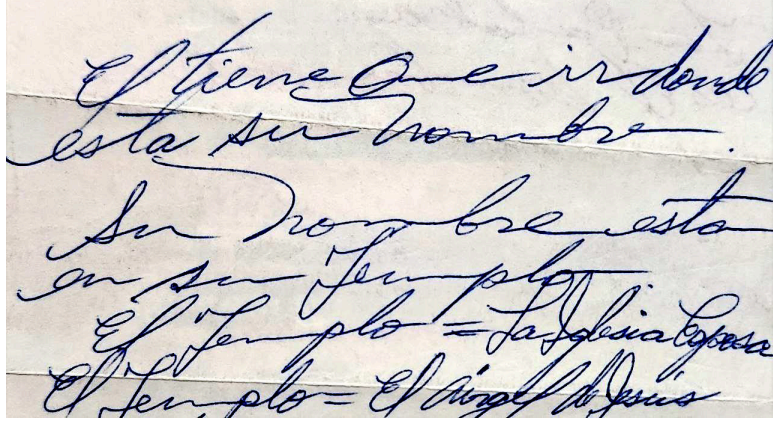 El tiene que ir donde
esta su nombre.
Su nombre esta
en su Templo
El Templo = La Iglesia Esposa
El Templo = El Angel de Jesús